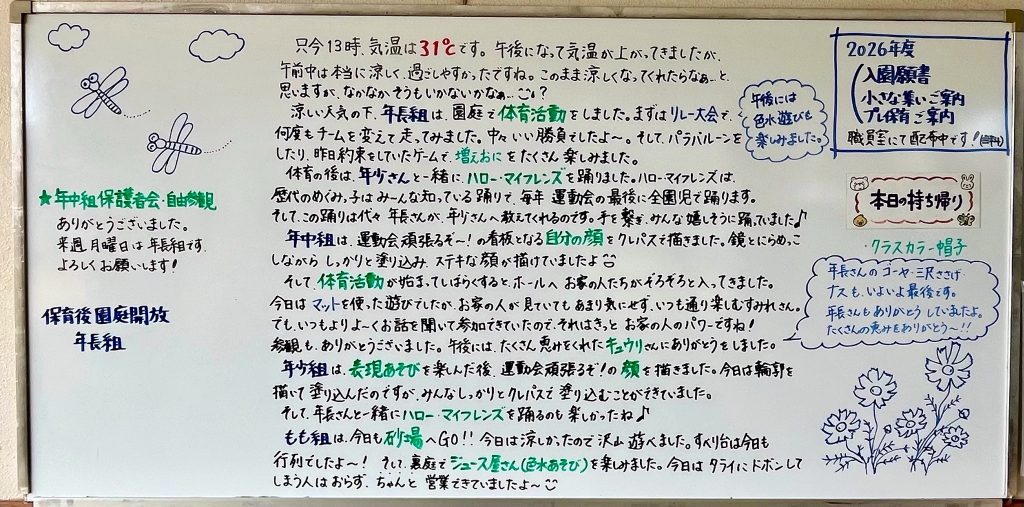 只今13時、気温は31℃です。午後になって気温が上がってきましたが、
午前中は本当に涼しく、過ごしやすかったですね。このまま涼しくなってくれたらなぁ…と
思いますが、なかなかそうもいかないかなぁ…?
涼しい天気の下、年長組は、園庭で体育活動をしました。まずはリレー大会で、
何度もチームを変えて走ってみました。中々いい勝負でしたよ〜。そして、パラバルーンを
したり、昨日約束をしていたゲームで、増えおにをたくさん楽しみました。
体育の後は、年少さんと一緒に、ハロー・マイフレンズを踊りました。ハロー・マイフレンズは、
歴代のめぐみっ子はみーんな知っている踊りで、毎年運動会の最後に全園児で踊ります。
そして、この踊りは代々年長さんが、年少さんへ教えてくれるのです。手を繋ぎ、みんな嬉しそうに踊っていました♪
年中組は、運動会頑張るぞ〜!の看板となる自分の顔をクレパスで描きました。鏡とにらめっこ
しながらしっかりと塗り込み、ステキな顔が描けていましたよ
そして、体育活動が始まってしばらくすると、ホールへお家の人たちがぞろぞろと入ってきました。
今日はマットを使った遊びでしたが、お家の人が見ていてもあまり気にせず、いつも通り楽しむすみれさん。
でも、いつもよりよ〜くお話を聞いて参加できていたので、それはきっとお家の人のパワーですね!
参観も、ありがとうございました。午後には、たくさん恵みをくれたキュウリさんにありがとうをしました。
年少組は、表現あそびを楽しんだ後、運動会頑張るぞ!の顔を描きました。今日は輪郭を
描いて塗り込んだのですが、みんなしっかりとクレパスで塗り込むことができていました。
そして、年長さんと一緒にハロー・マイフレンズを踊るのも楽しかったね♪
もも組は、今日も砂場へGO!! 今日は涼しかったので沢山遊べました。すべり台は今日も
行列でしたよ〜! そして、裏庭でジュース屋さん(色水あそび)を楽しみました。今日はタライにドボンして
しまう人はおらず、ちゃんと営業できていましたよ〜
★年中組保護者会・自由参観
ありがとうございました。
来週月曜日は年長組です。
よろしくお願いします!
保育後園庭開放
年長組
午後には
色水遊びも
楽しみました。
2026年度
入園願書
小さな集いご案内
プレ保育ご案内
職員室にて配布中です!
本日の持ち帰り
・クラスカラー帽子
年長さんのゴーヤ・三尺ささげ・
ナスも、いよいよ最後です。
年長さんもありがとうしていましたよ。
たくさんの恵みをありがとう〜!!